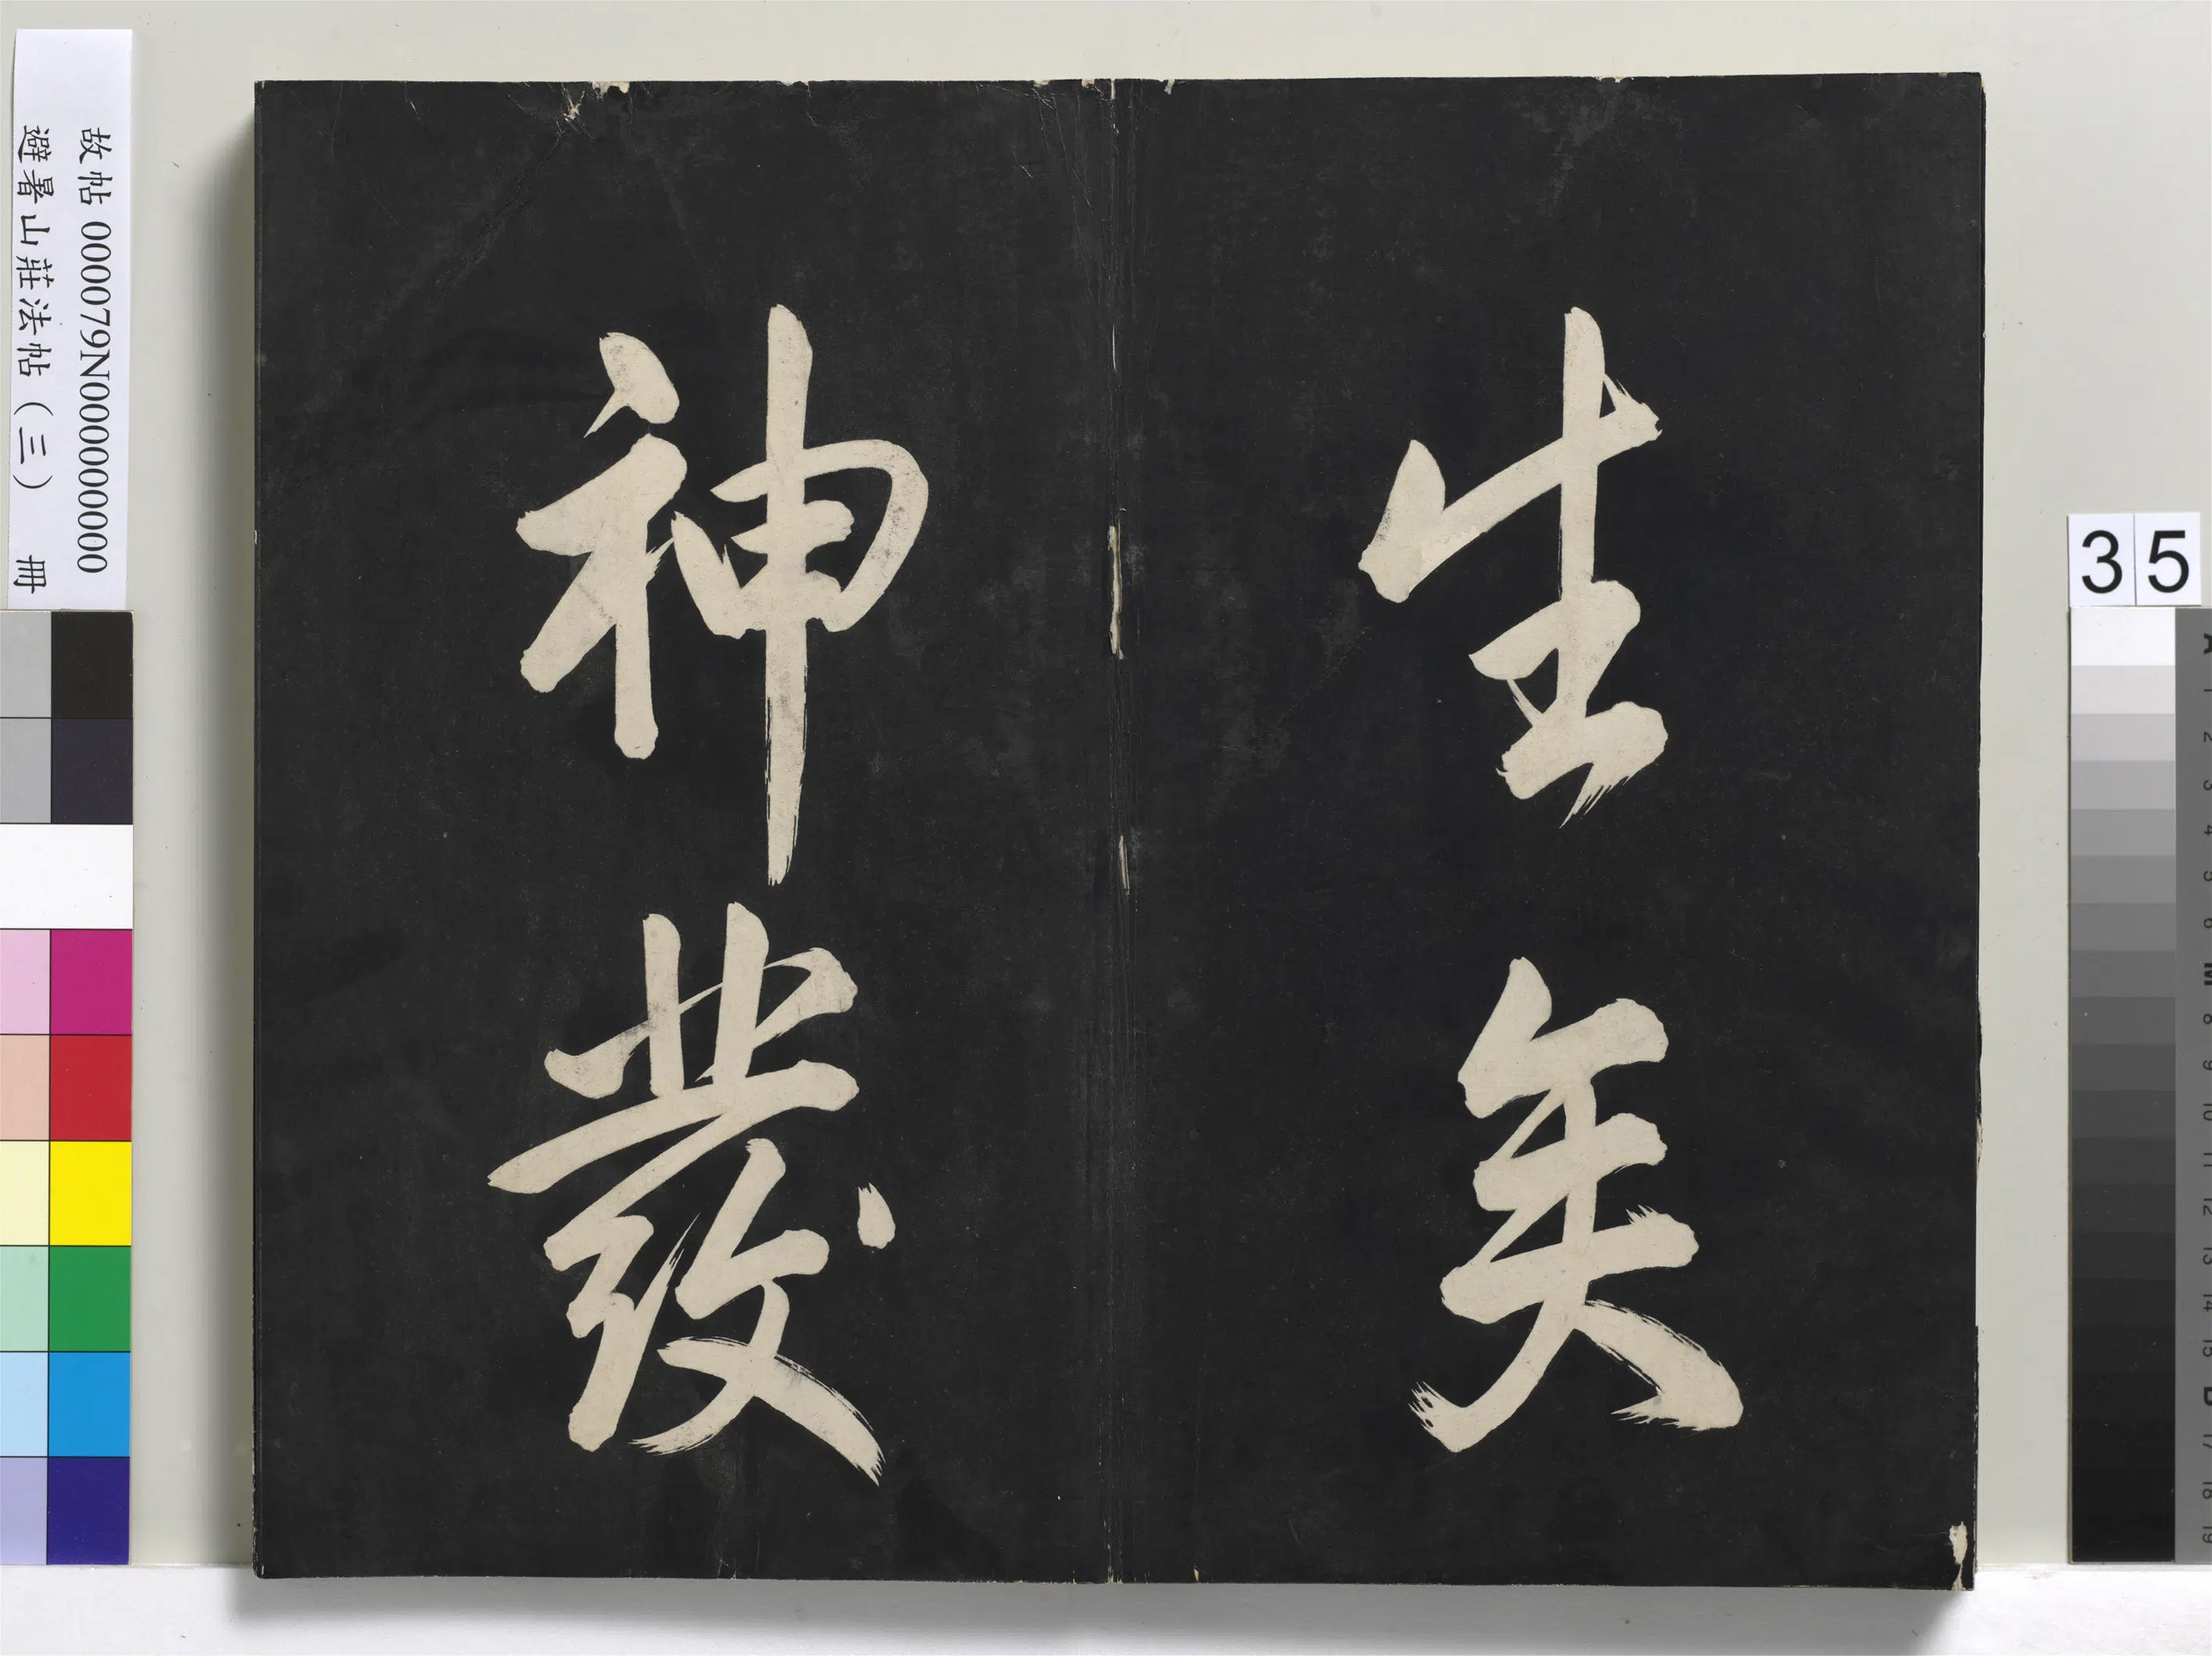 生矣
神發
故帖 000079N000000000
避暑山莊法帖（三） 冊
35
A 1 2 3 4 5 6 M 8 9 10 11 12 13 14 15 B 17 18 19